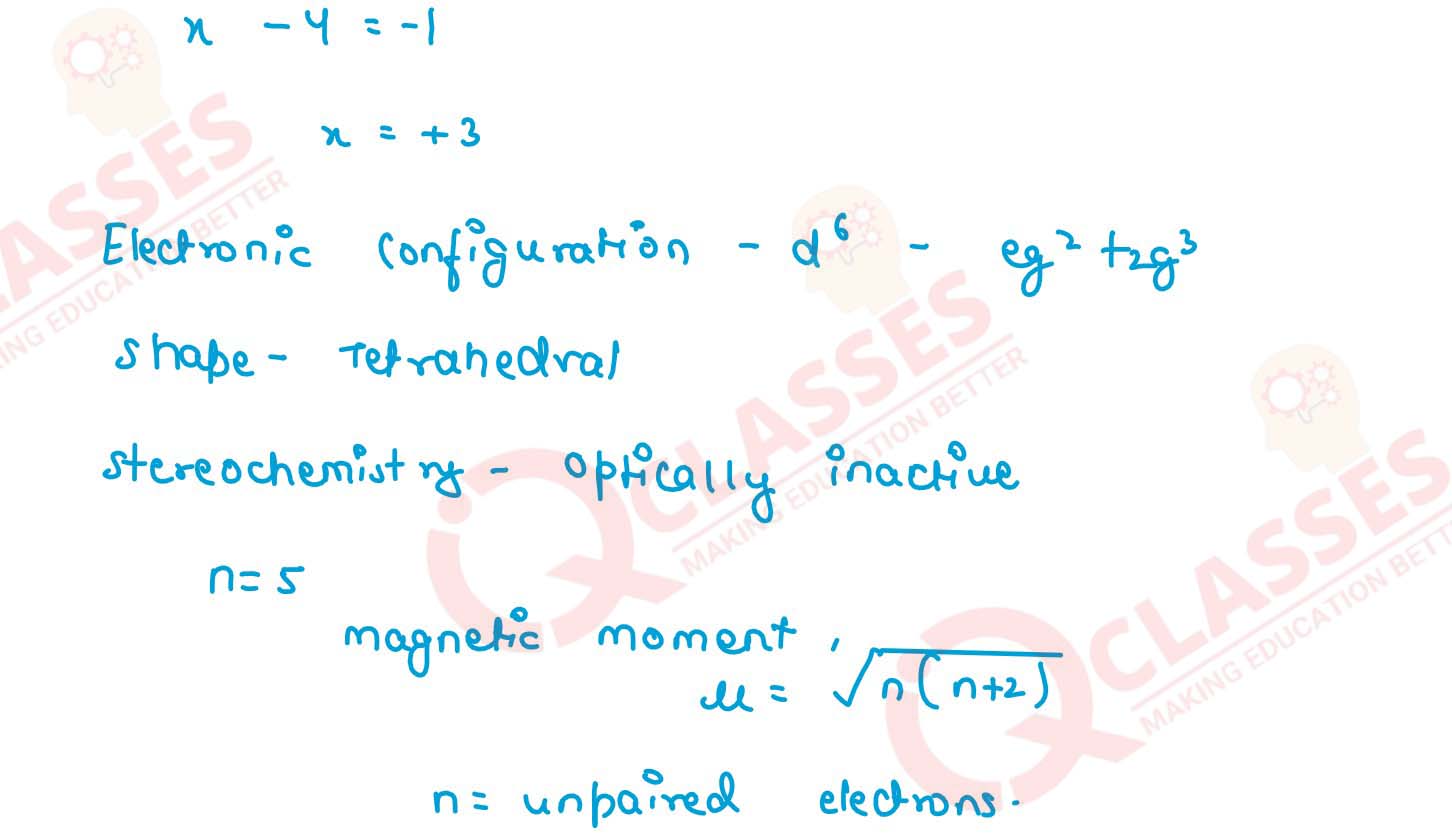 x - 4 = -1
x = +3
Electronic configuration - d⁶ - eg² t₂g³
shape - Tetrahedral
stereochemistry - optically inactive
n = 5
magnetic moment,
μ = √n(n+2)
n = unpaired electrons.
CLASSES
MAKING EDUCATION BETTER
CLASSES
MAKING EDUCATION BETTER
CLASSES
MAKING EDUCATION BETT